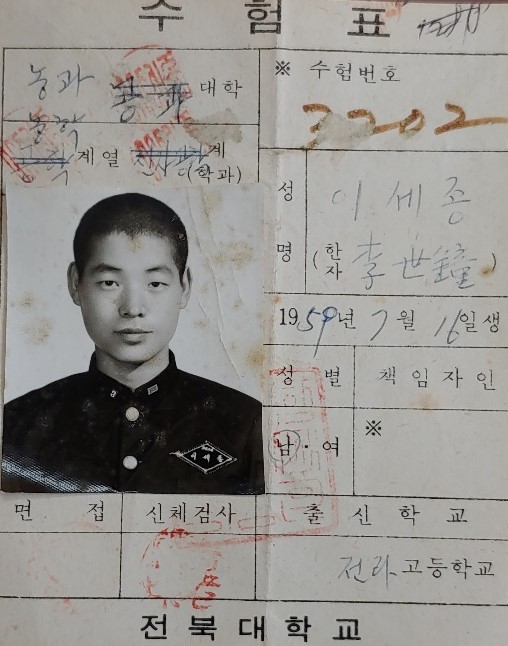 수험표
농과 공과 대학
※ 수험번호
농학
3202
계열 계
(학과)
성명 이세종
(한자 李世鐘)
1959년 7월 16일생
성별
책임자인
남·여
※
면접
신체검사
출신학교
전라고등학교
전북대학교